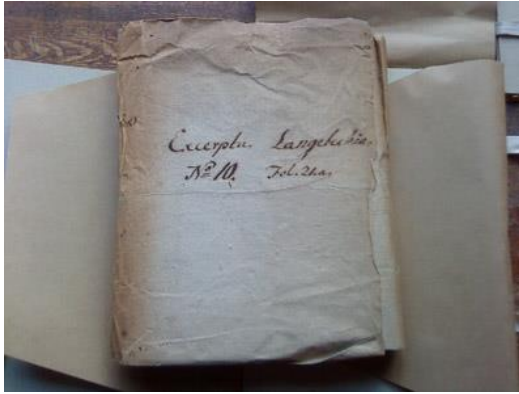 Excerpta. Langebekia.
Nº 10. Fol.